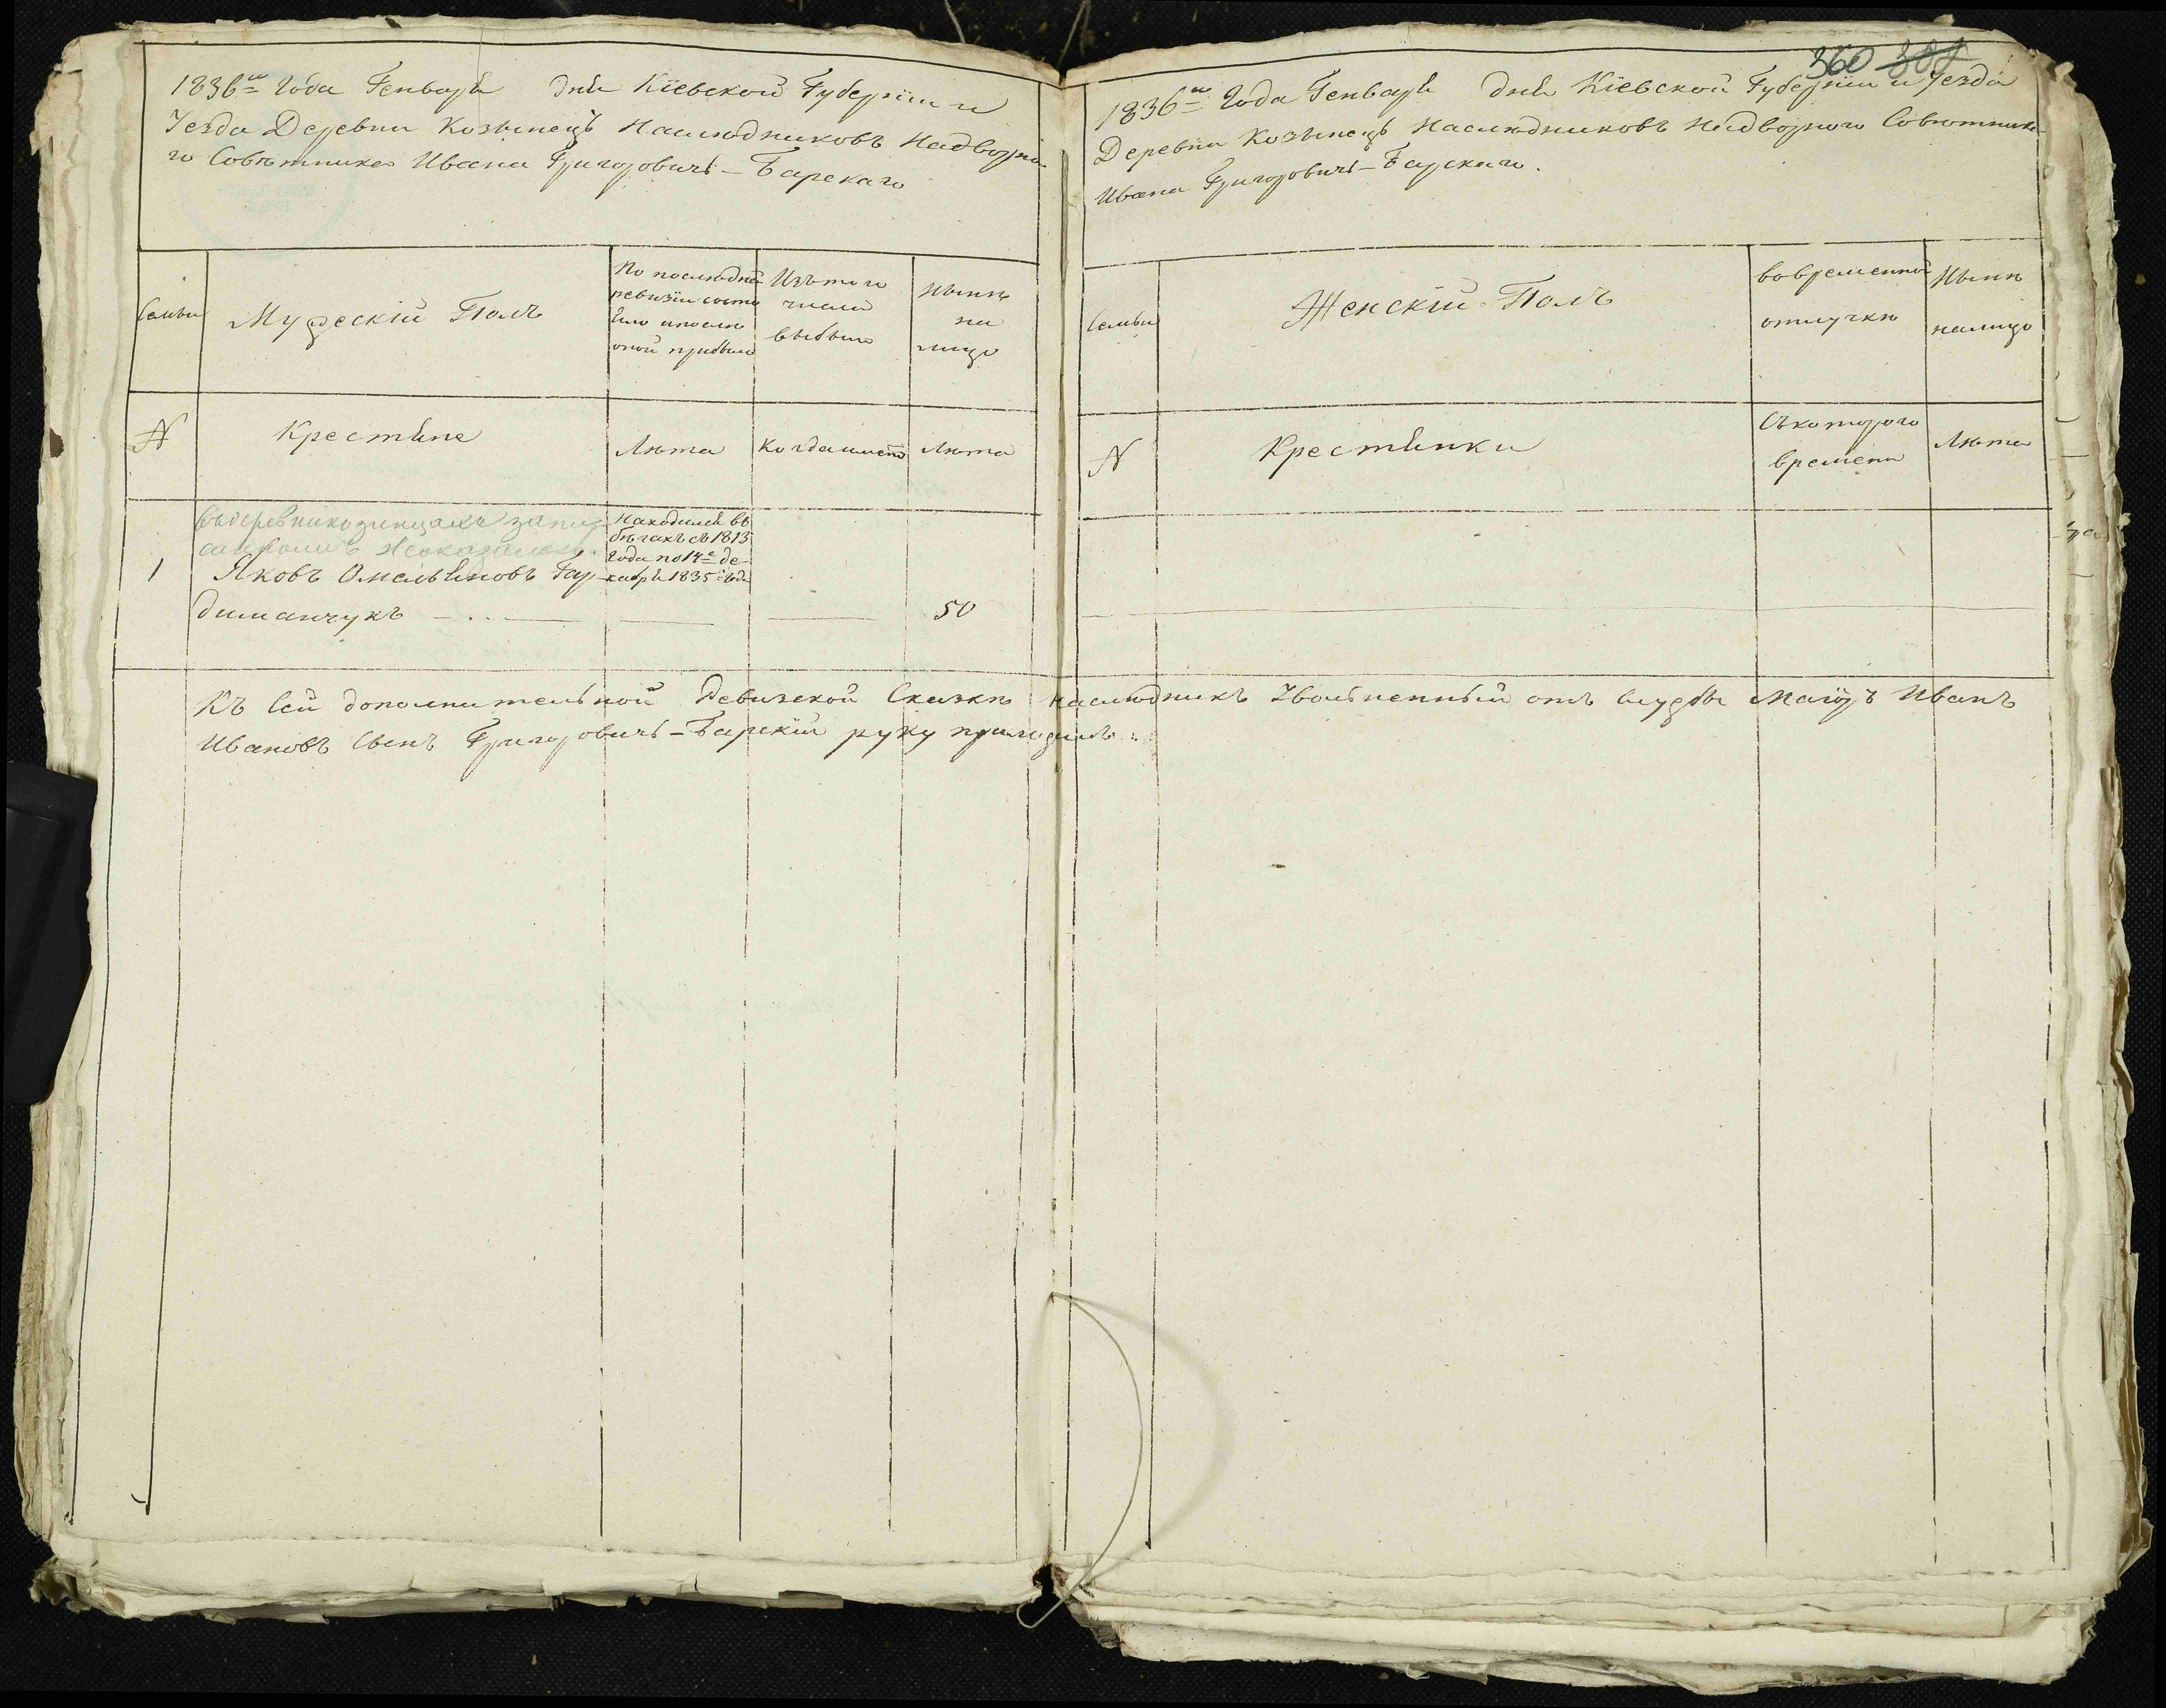 1836го Года Генваря дня Кіевской Губерніи и
Уезда Деревни Козынецъ Наслѣдниковъ Надворна-
го Совѣтника Ивана Григоровичь-Барскаго
Семьи
Мужескій Полъ
По послѣдней
ревизіи состо
яло и послѣ
оной прибыло
Изъ того
числа
выбыло
Нынѣ
на
лицо
N
Крестяне
Лѣта
Когда именно
Лѣта
1
Въ деревни козинцахъ
Яковъ Омельяновъ Гар-
диманчукъ
Находился въ
бѣгахъ съ 1813
года по 14е де-
кабря 1835 года
50
360
1836го Года Генваря дня Кіевской Губерніи и Уезда
Деревни Козынецъ Наслѣдниковъ Надворнаго Совѣтника
Ивана Григоровичь-Барскаго.
Семьи
Женскій Полъ
Во временной
отлучкѣ
Нынѣ
налицо
N
Крестянки
Съ котораго
времени
Лѣта
Къ сей дополнительной Ревизской Сказкѣ наслѣдникъ Уволненный отъ службы Маіоръ Иванъ
Ивановъ Сынъ Григоровичь-Барскій руку приложилъ